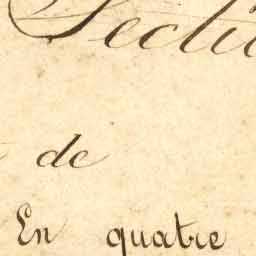 Secti
de
En quatre